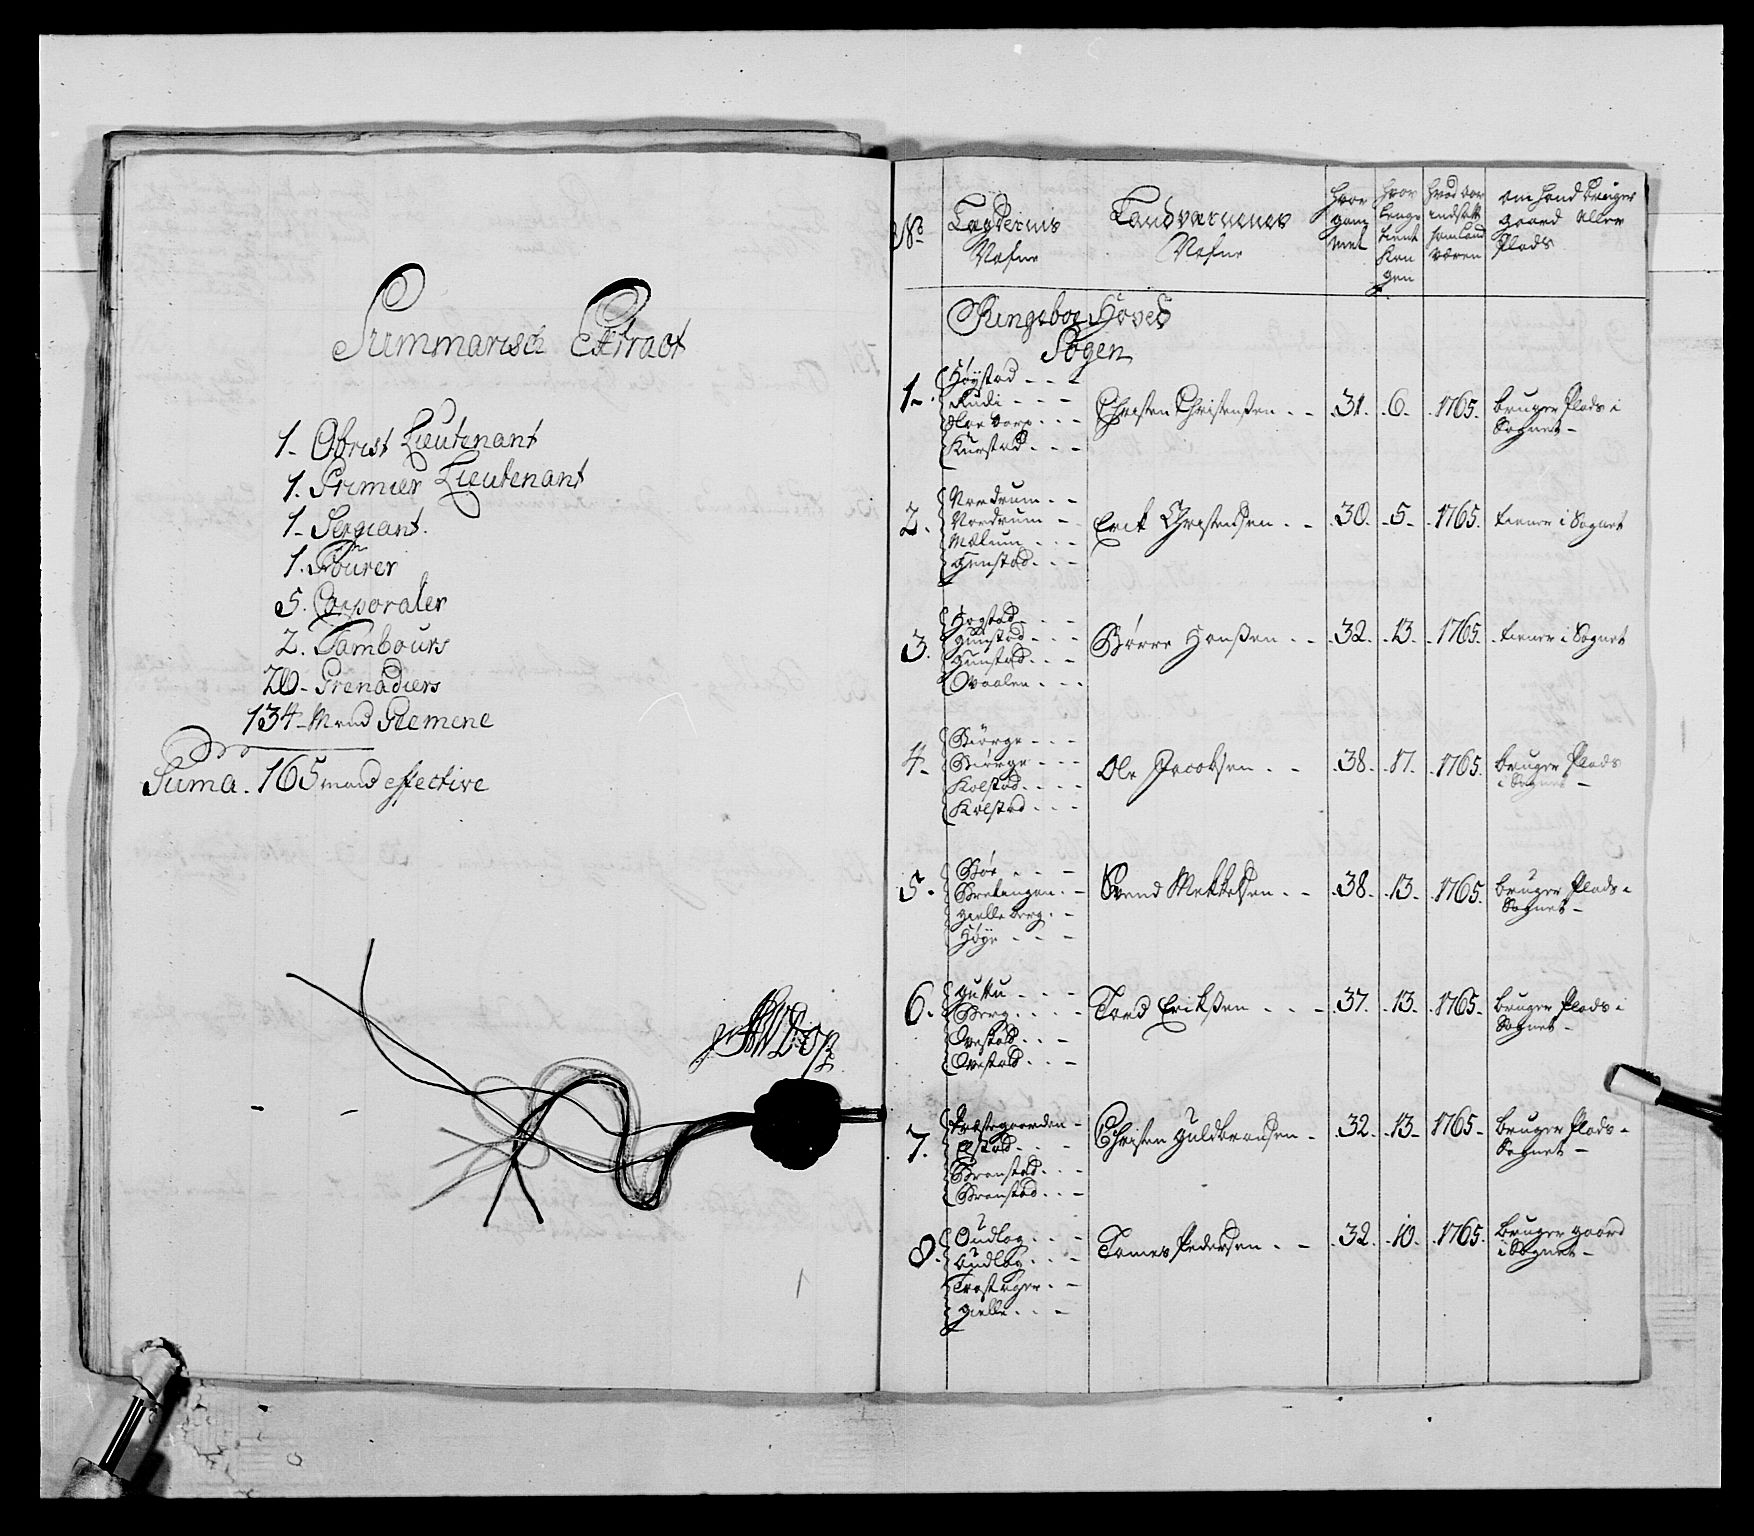 Summarisch Extract
1- Obrist Lieutenant
1. Premier Lieutenant
1- Sergiant.
1. Fourer
5. Corporaler
2. Tambours
20- Grenadiers
134- Mand Gemene
Suma. 165 mand effective
No
Lægdernis
Nafne
Landværnenes
Nafne
hvor
gam
mel
hvor
lenge
tient
Kon
gen
hvad aar
indsatt
som land
væren
om hand bruger
gaard eller
Plads
Ringeboe Hoved
Sogen
1-. Høystad - - -
Rudi - - -
Kurstad - - -
Christen Christensen - - .31. .6. .1765. bruger Plads i
Sognet -
2. Nordrum - -
Nordrum -
Mælum - - -
gunstad - - -
Erik Christensen - - .30. .5. .1765. tiener i Sognet
3. Hogstad - -
gunstad - - -
gunstad - - -
Ovaalen - - -
Børre Hansen - - .32. .13. .1765. tiener i Sognet
4- Biørge - - -
Biørge - - -
Kolstad - - - -
Kolstad - - -
Ole Jacobsen - - .38. .17. .1765. bruger Plads
i Sognet -
5. Bøe - - -
Brekengen - -
gielleberg - -
Høye - - -
Svend Mekkelsen - - .38. .13. .1765. bruger Plads i
Sognet -
6. guttu - - -
Berg - - - -
Ovestad - - -
Ovestad - - -
Tord Eriksen - - - .37. .13. .1765. bruger Plads i
Sognet -
7. Præstegaarden -
Elstad - - -
Brenstad - - -
Brenstad - - -
Christen Guldbransen - .32. .13. .1765. bruger Plads -
Sognet -
8. Oudlog - - -
Oudlog - - -
Trostager - -
gielle - - -
Tomes Pedersen - - .32. .10. .1765. bruger gaard
i Sognet -
1